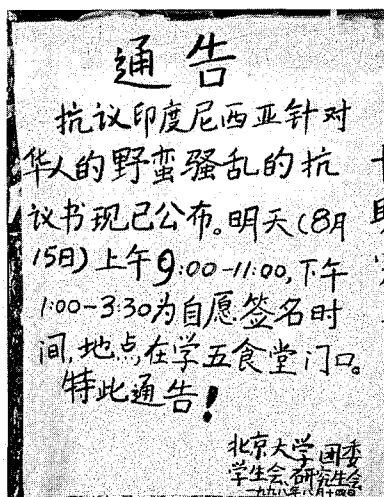 通告
抗议印度尼西亚针对
华人的野蛮骚乱的抗
议书现已公布。明天(8月
15日)上午9:00-11:00,下午
1:00-3:30为自愿签名时
间,地点在学五食堂门口。
特此通告!
北京大学团委
学生会 研究生会
一九九八年八月十四日